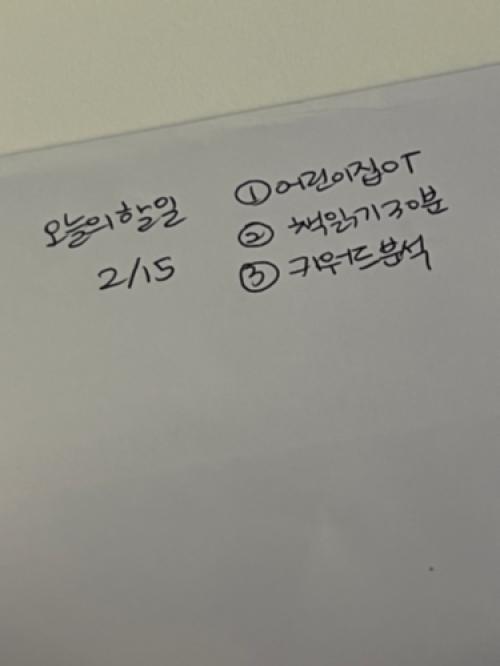 오늘의 할일
2/15
① 어린이집OT
② 책읽기 30분
③ 키워드분석